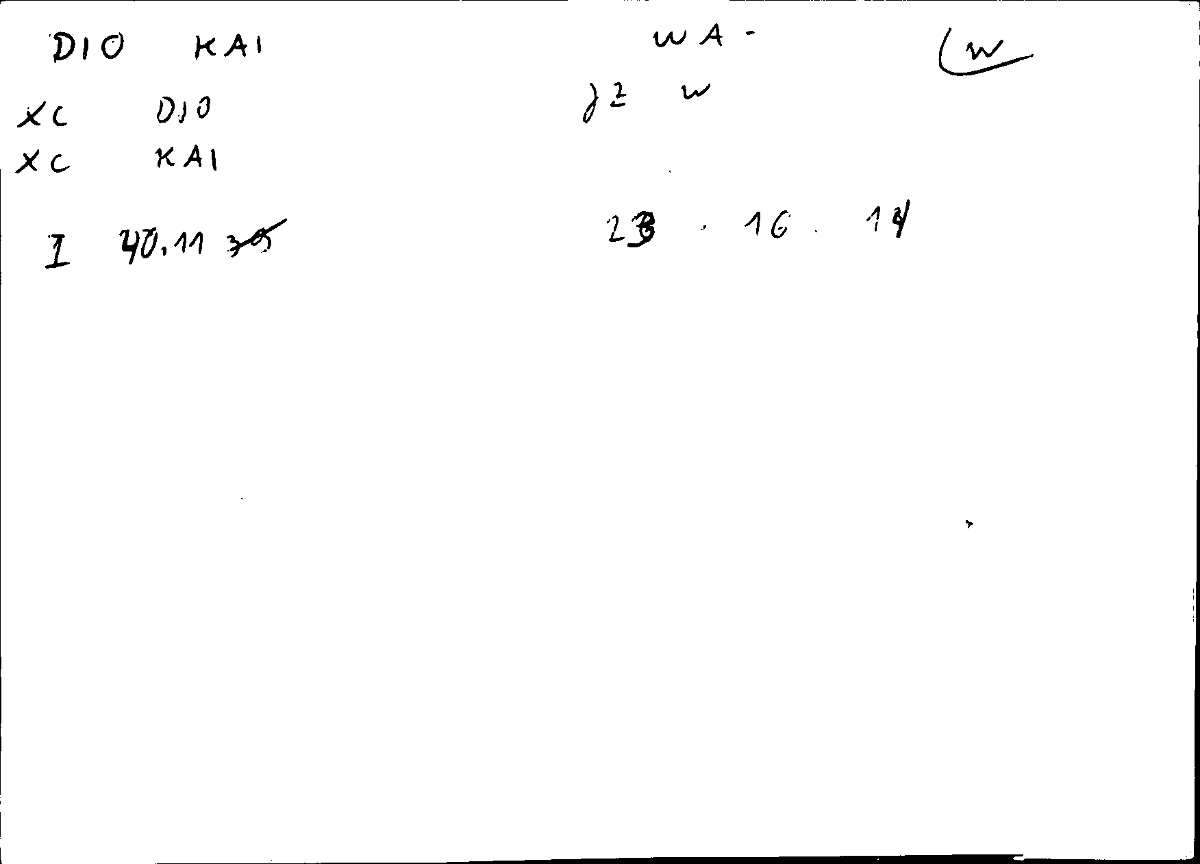 DIO KAI WA - W
XC DIO JZ W
XC KAI
I 40.11 23 . 16 . 14